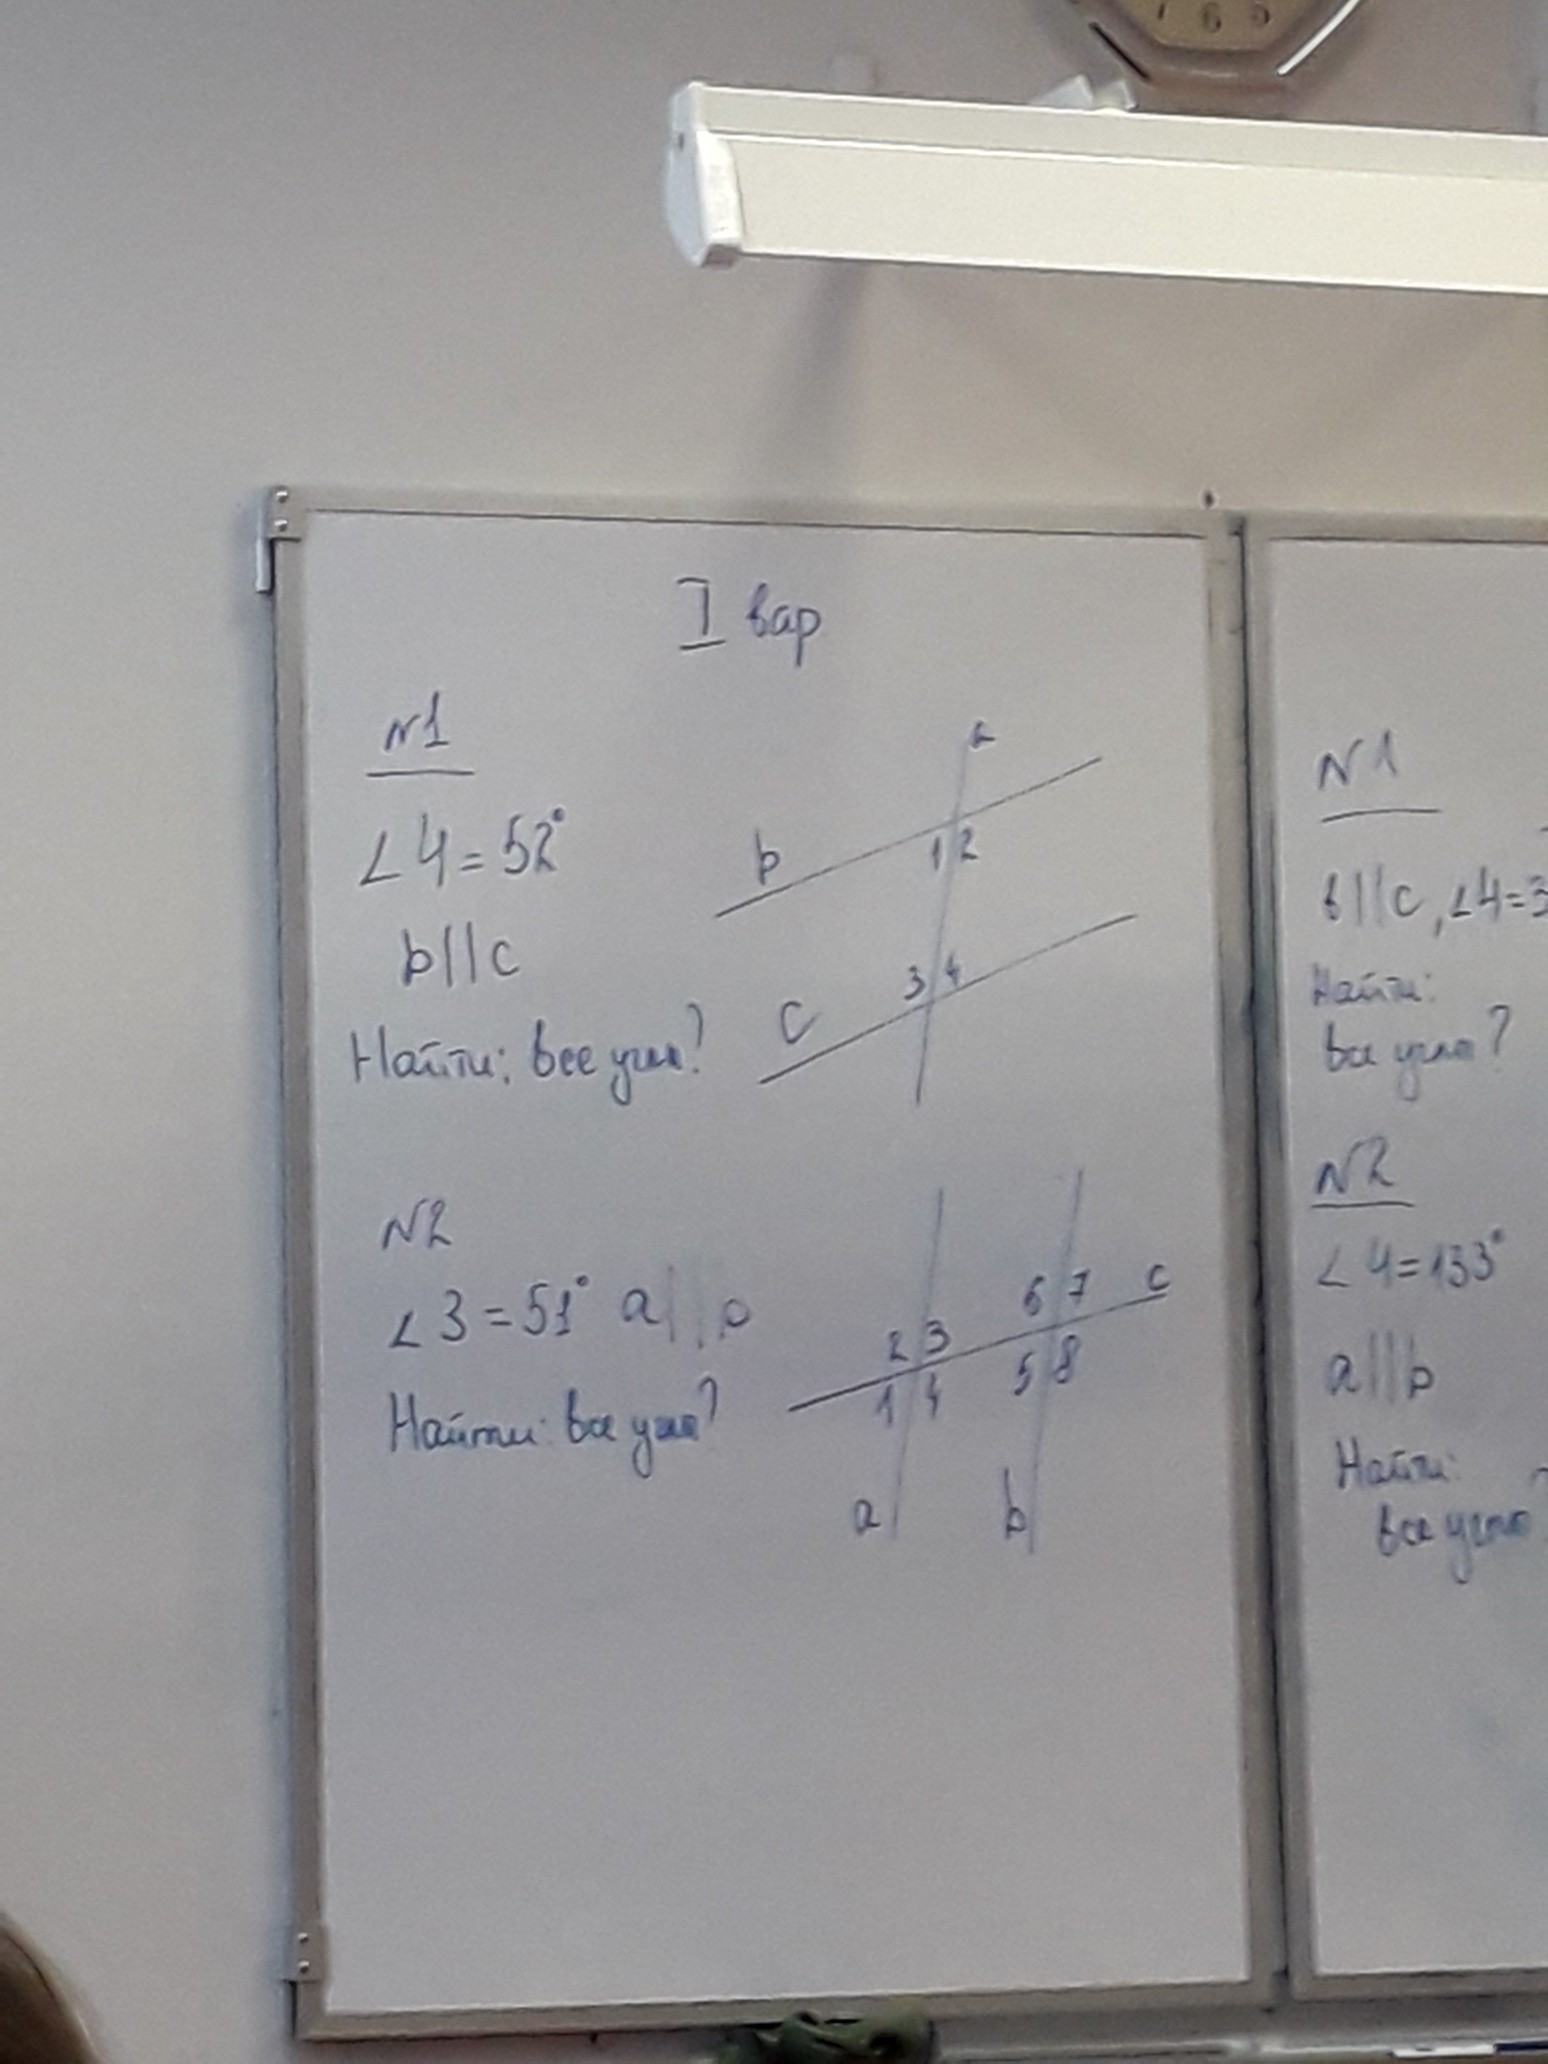 7 6 5
I вар
N1
∠4=52°
b||c
Найти: все углы?
a
b
1 2
3 4
c
N2
∠3=51° a||b
Найти: все углы?
2 3 6 7 c
1 4 5 8
a b
N1
b||c, ∠4=3
Найти:
все углы?
N2
∠4=133°
a||b
Найти:
все углы?